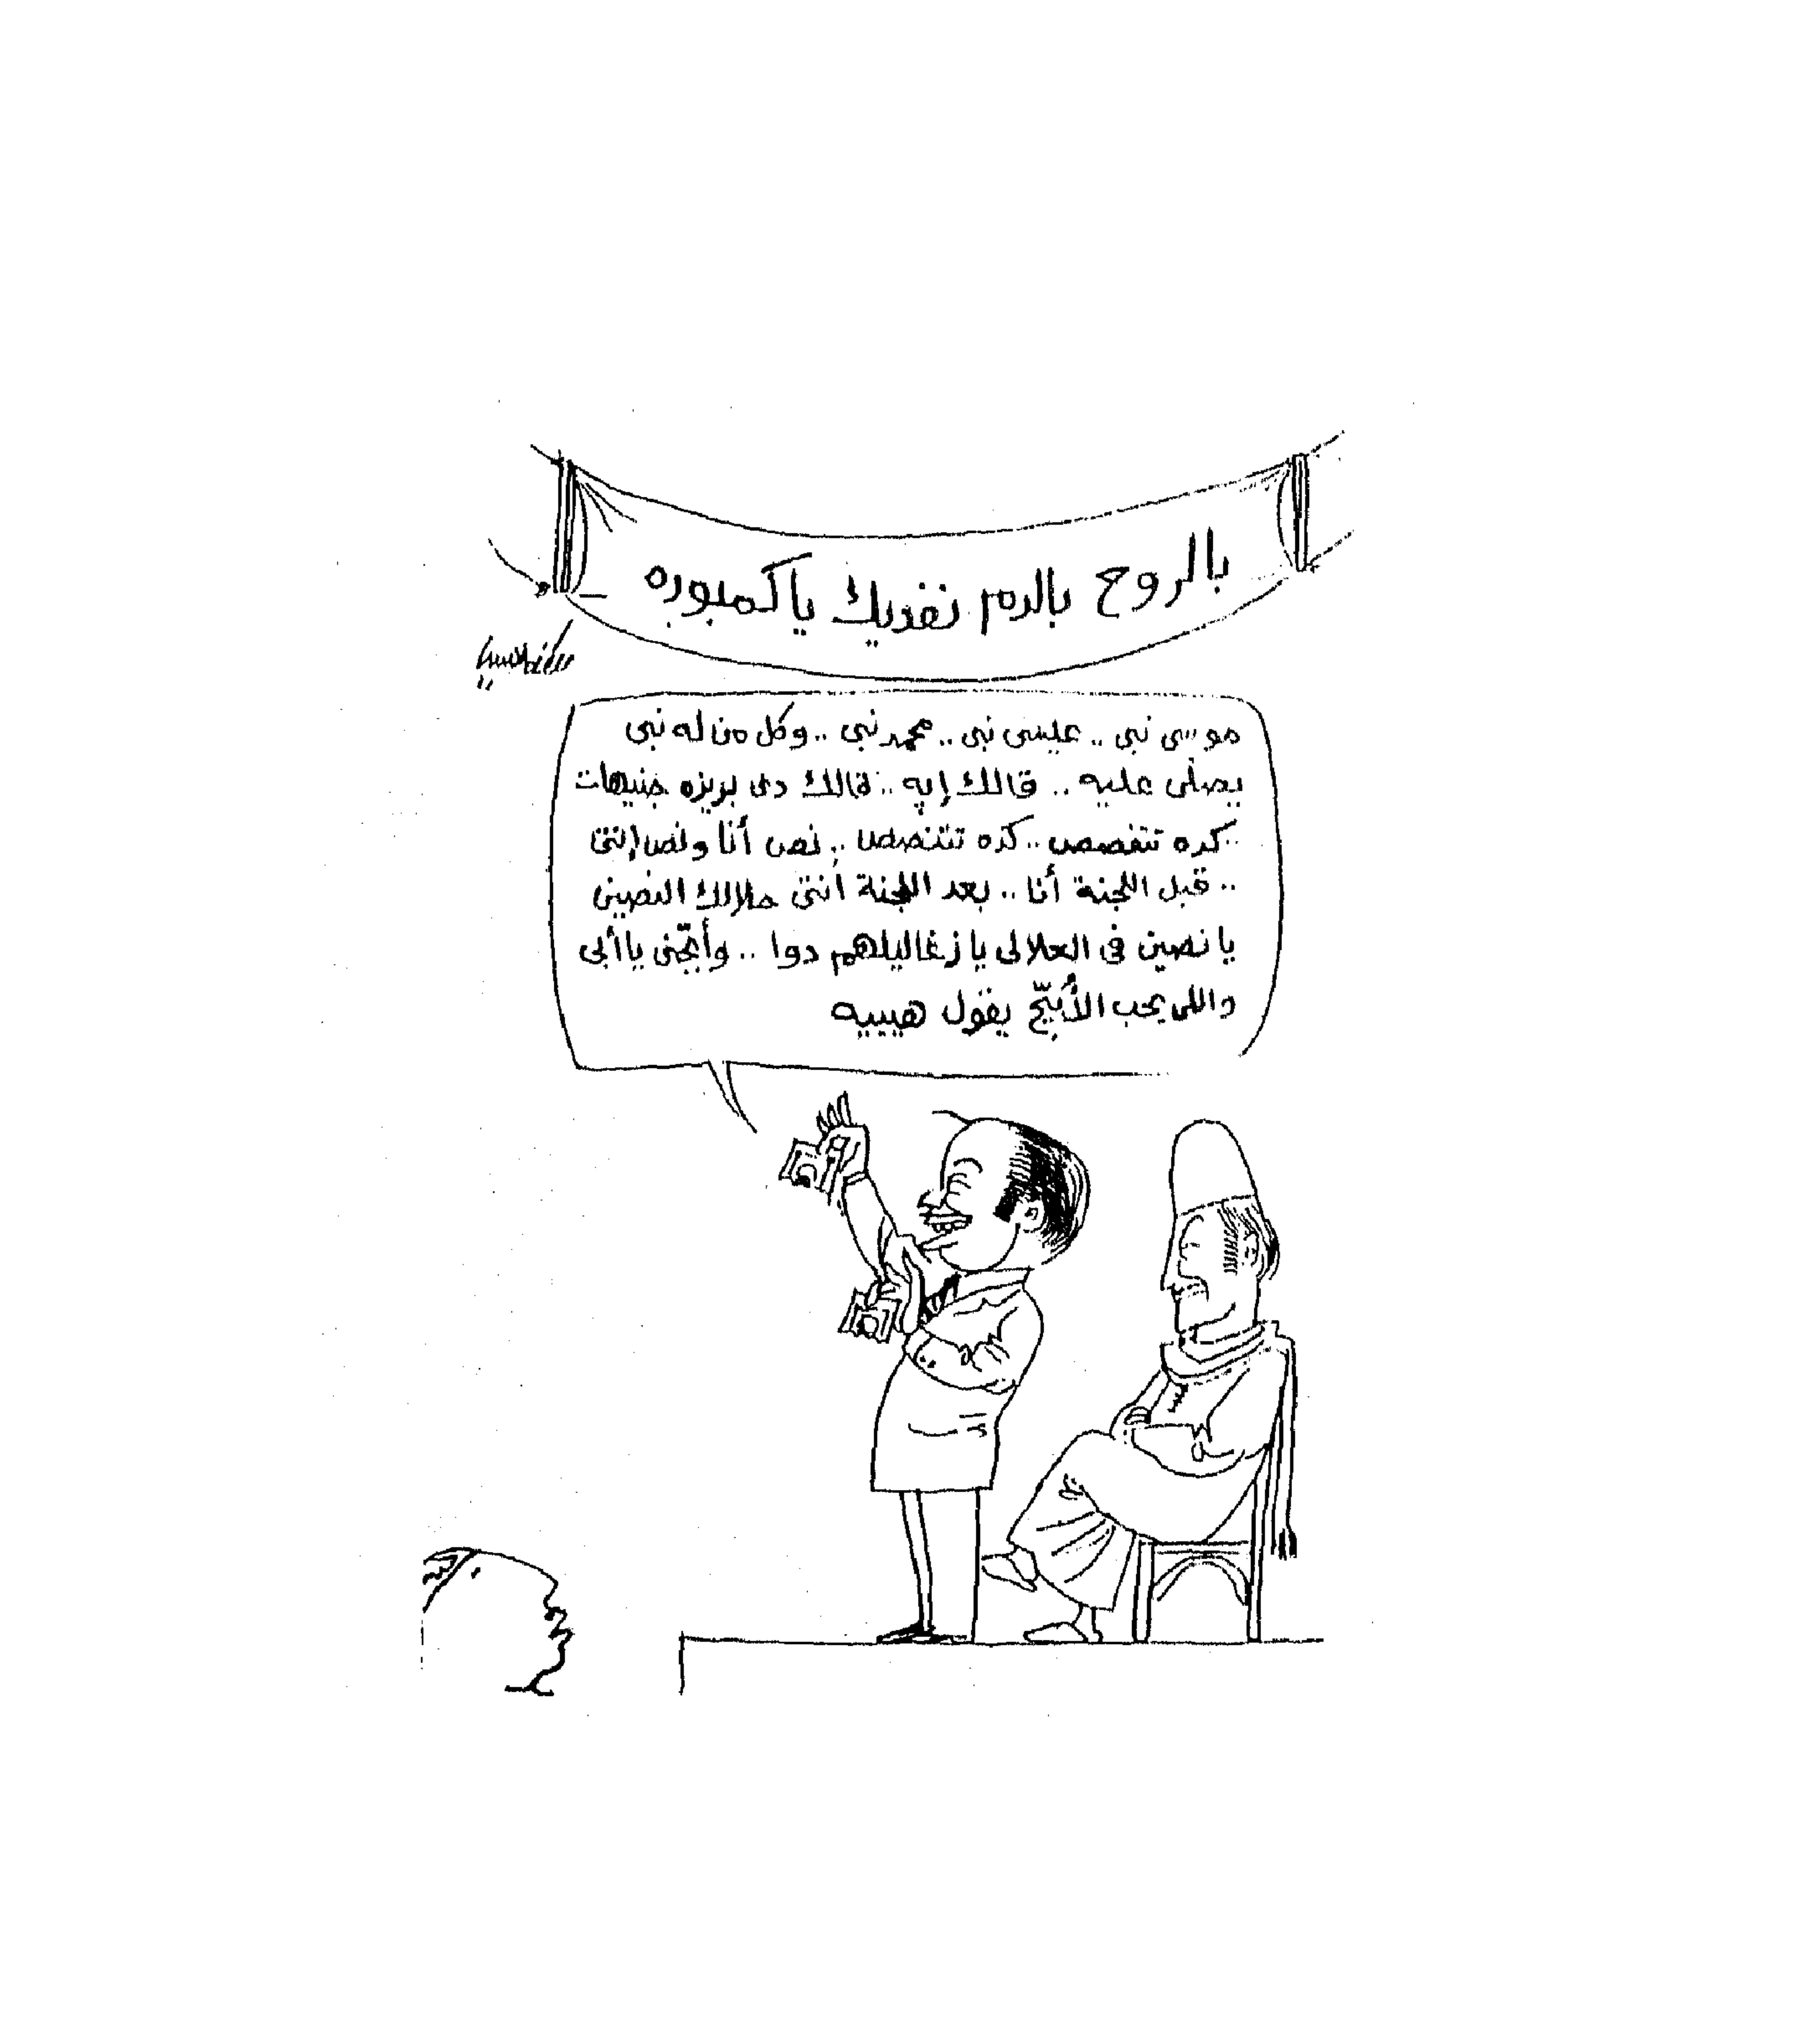 بالروح بالدم نفديك ياكمبوره
موسى نبى .. عيسى نبى .. محمد نبى .. وكل من له نبى
يصلى عليه .. قالك إيه .. قالك دى بريزه جنيهات
.. كده تتفصص .. كده تتنصص .. نص أنا ونص إنتى
.. قبل اللجنة أنا .. بعد اللجنة أنتى حلالك النصين
يا نصين فى العلالى يا زغاليلهم دوا .. وأبجنى يا أبى
واللى يحب الأبيج يقول هيييه